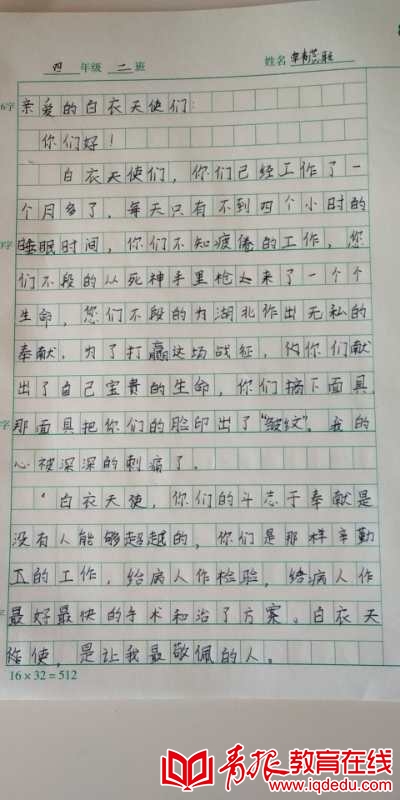 四年级 二班 姓名
亲爱的白衣天使们：
你们好！
白衣天使们，你们已经工作了一
个月多了，每天只有不到四个小时的
睡眠时间，你们不知疲倦的工作，您
们不段的从死神手里枪来了一个个
生命，您们不段的为湖北作出无私的
奉献，为了打赢这场战征，你们献
出了自己宝贵的生命，你们摘下面具，
那面具把你们的脸印出了“皱纹”。我的
心被深深的刺痛了。
白衣天使，你们的斗志于奉献是
没有人能够超越的，你们是那样辛勤
的工作，给病人作检验，给病人作
最好最快的手术和治了方案。白衣天
使，是让我最敬佩的人。
16×32=512
青报教育在线
www.iqdedu.com